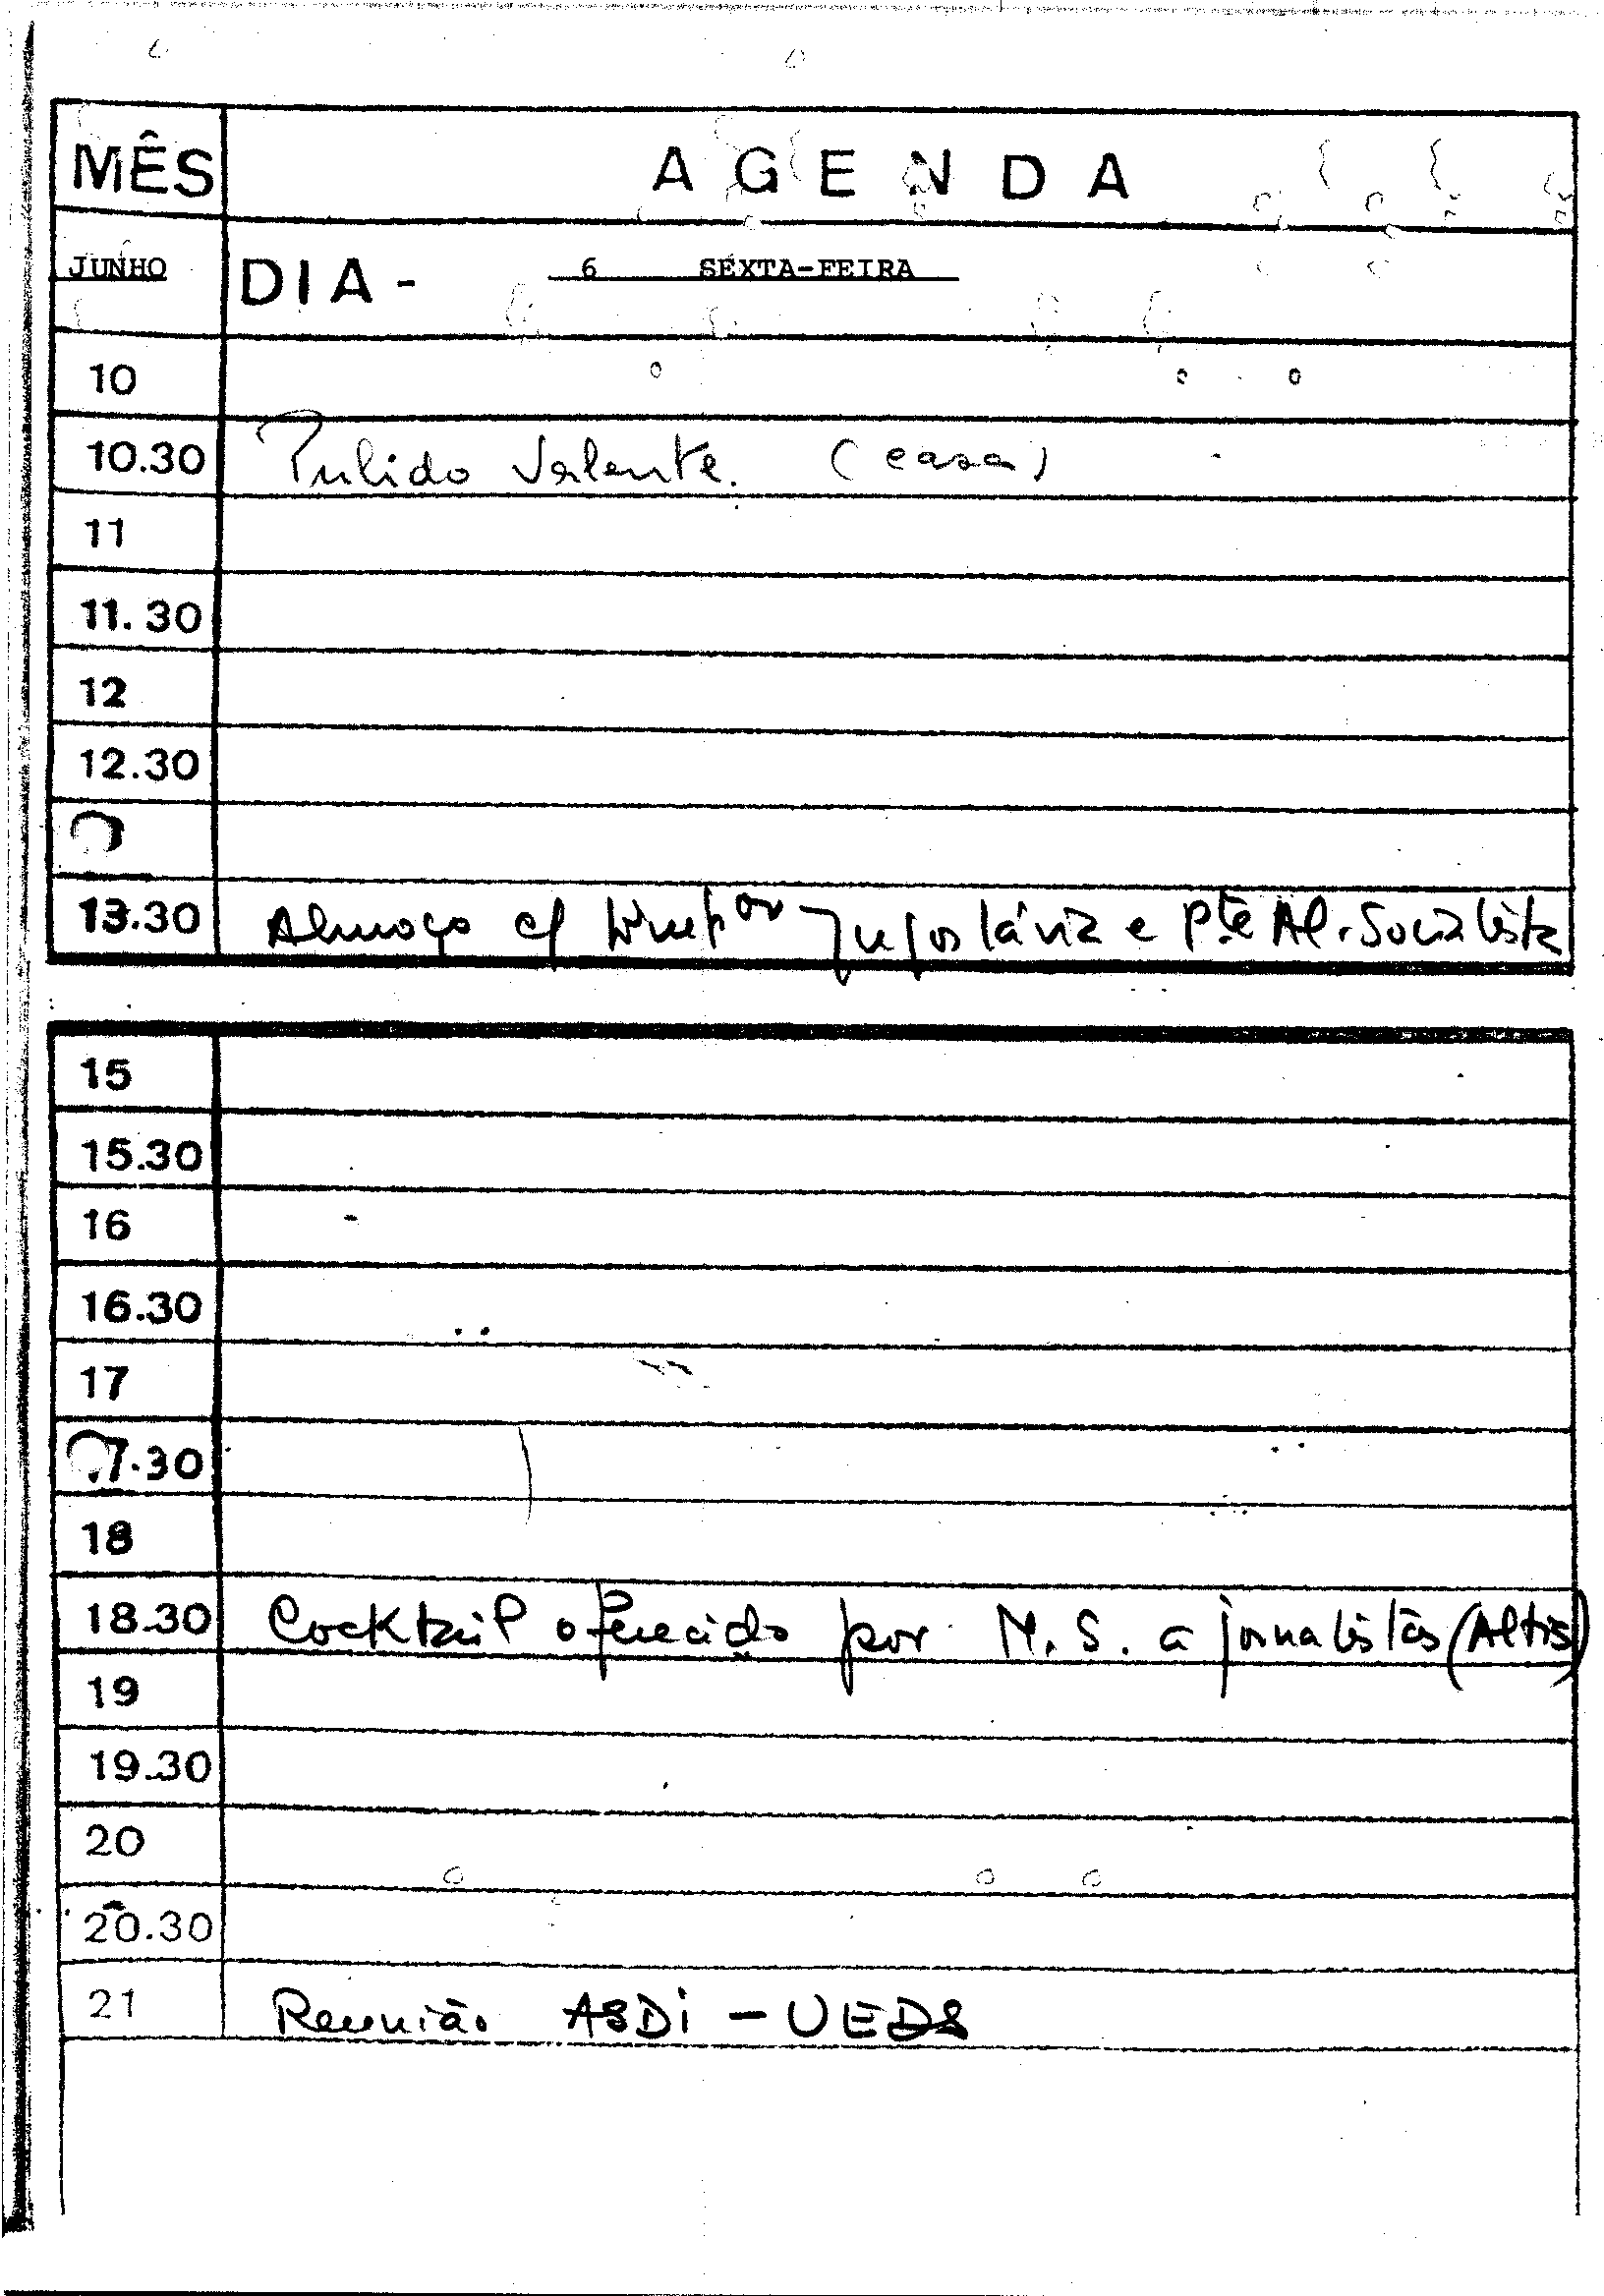 MÊS AGENDA
JUNHO DIA - 6 SEXTA-FEIRA
10
10.30 Pulido Valente. (casa)
11
11.30
12
12.30
13.30 Almoço c/ Jugoslávia e Pte Al. Socialista
15
15.30
16
16.30
17
17.30
18
18.30 Cocktail oferecido por M. S. a jornalistas (Altis)
19
19.30
20
20.30
21 Reunião ASDI - UEDS